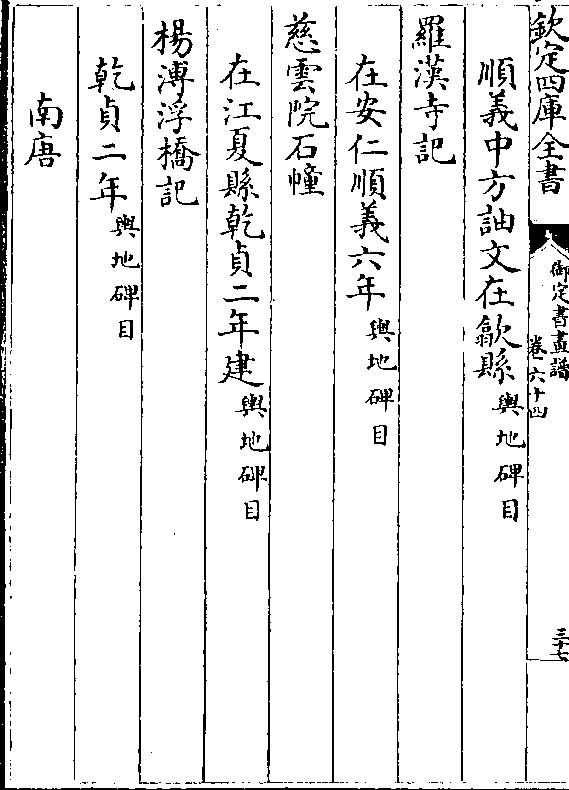 欽定四庫全書
御定書畫譜
卷六十四
三十七
順義中方訕文在歙縣輿地碑目
羅漢寺記
在安仁順義六年輿地碑目
慈雲院石幢
在江夏縣乾貞二年建輿地碑目
楊溥浮橋記
乾貞二年輿地碑目
南唐